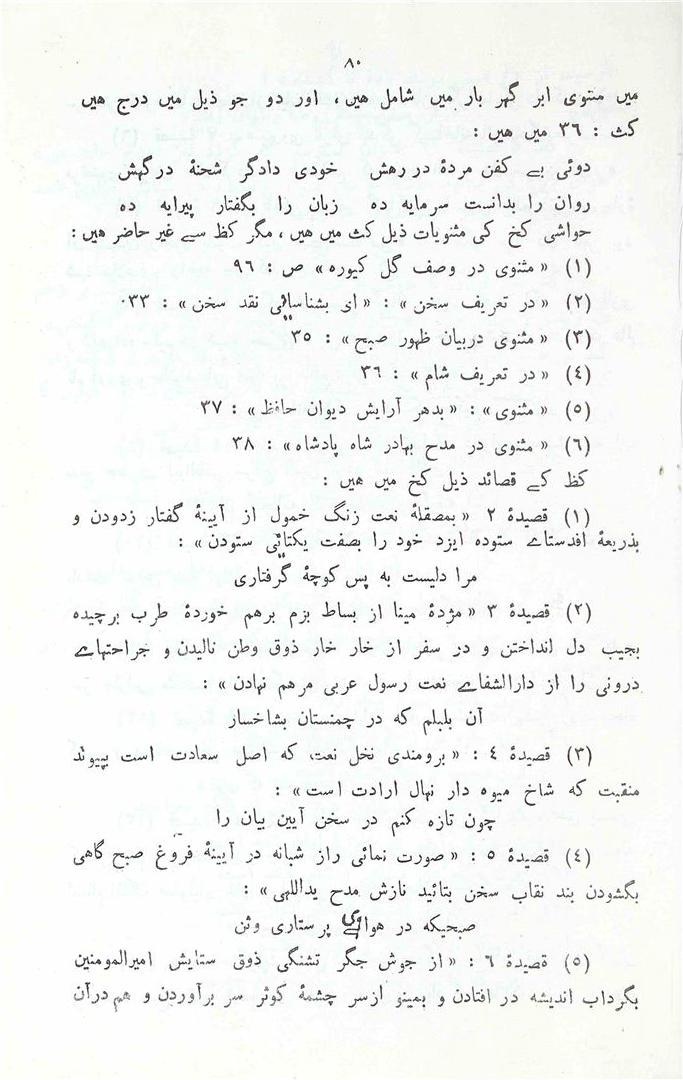 ۸۰
میں مثنوی ابر گہر بار میں شامل ھیں، اور دو جو ذیل میں درج ھیں
کث : ۳۶ میں ھیں :
دوئی بے کفن مردۂ در رھش خودی دادگر شحنۂ درگہش
روان را بدانست سرمایہ دہ زبان را بگفتار پیرایہ دہ
حواشی کخ کی مثنویات ذیل کث میں ھیں ، مگر کظ سے غیر حاضر ھیں :
(۱) « مثنوی در وصف گل کیورہ » ص : ۹۶
(۲) « در تعریف سخن » : « ای بشناسائی نقد سخن » : ۰۳۳
(۳) « مثنوی دربیان ظہور صبح » : ۳۵
(٤) « در تعریف شام » : ۳۶
(۵) « مثنوی » : « بدھر آرایش دیوان حافظ » : ۳۷
(٦) « مثنوی در مدح بہادر شاہ پادشاہ » : ۳۸
کظ کے قصائد ذیل کخ میں ھیں :
(۱) قصیدۂ ۲ « بمصقلۂ نعت زنگ خمول از آیینۂ گفتار زدودن و
بذریعۂ افدستاے ستودہ ایزد خود را بصفت یکتائی ستودن » :
مرا دلیست بہ پس کوچۂ گرفتاری
(۲) قصیدۂ ۳ « مژدۂ مینا از بساط بزم برھم خوردۂ طرب برچیدہ
بجیب دل انداختن و در سفر از خار خار ذوق وطن نالیدن و جراحتہاے
درونی را از دارالشفاے نعت رسول عربی مرھم نہادن » :
آن بلبلم کہ در چمنستان بشاخسار
(۳) قصیدۂ ٤ : « برومندی نخل نعت، کہ اصل سعادت است بپیوند
منقبت کہ شاخ میوہ دار نہال ارادت است » :
چون تازہ کنم در سخن آیین بیان را
(٤) قصیدۂ ۵ : « صورت نمائی راز شبانہ در آیینۂ فروغ صبح گاھی
بگشودن بند نقاب سخن بتائید نازش مدح یداللہی » :
صبحیکہ در ھواے پرستاری وثن
(۵) قصیدۂ ٦ : « از جوش جگر تشنگی ذوق ستایش امیرالمومنین
بگرداب اندیشہ در افتادن و بمینو ازسر چشمۂ کوثر سر برآوردن و ھم درآن